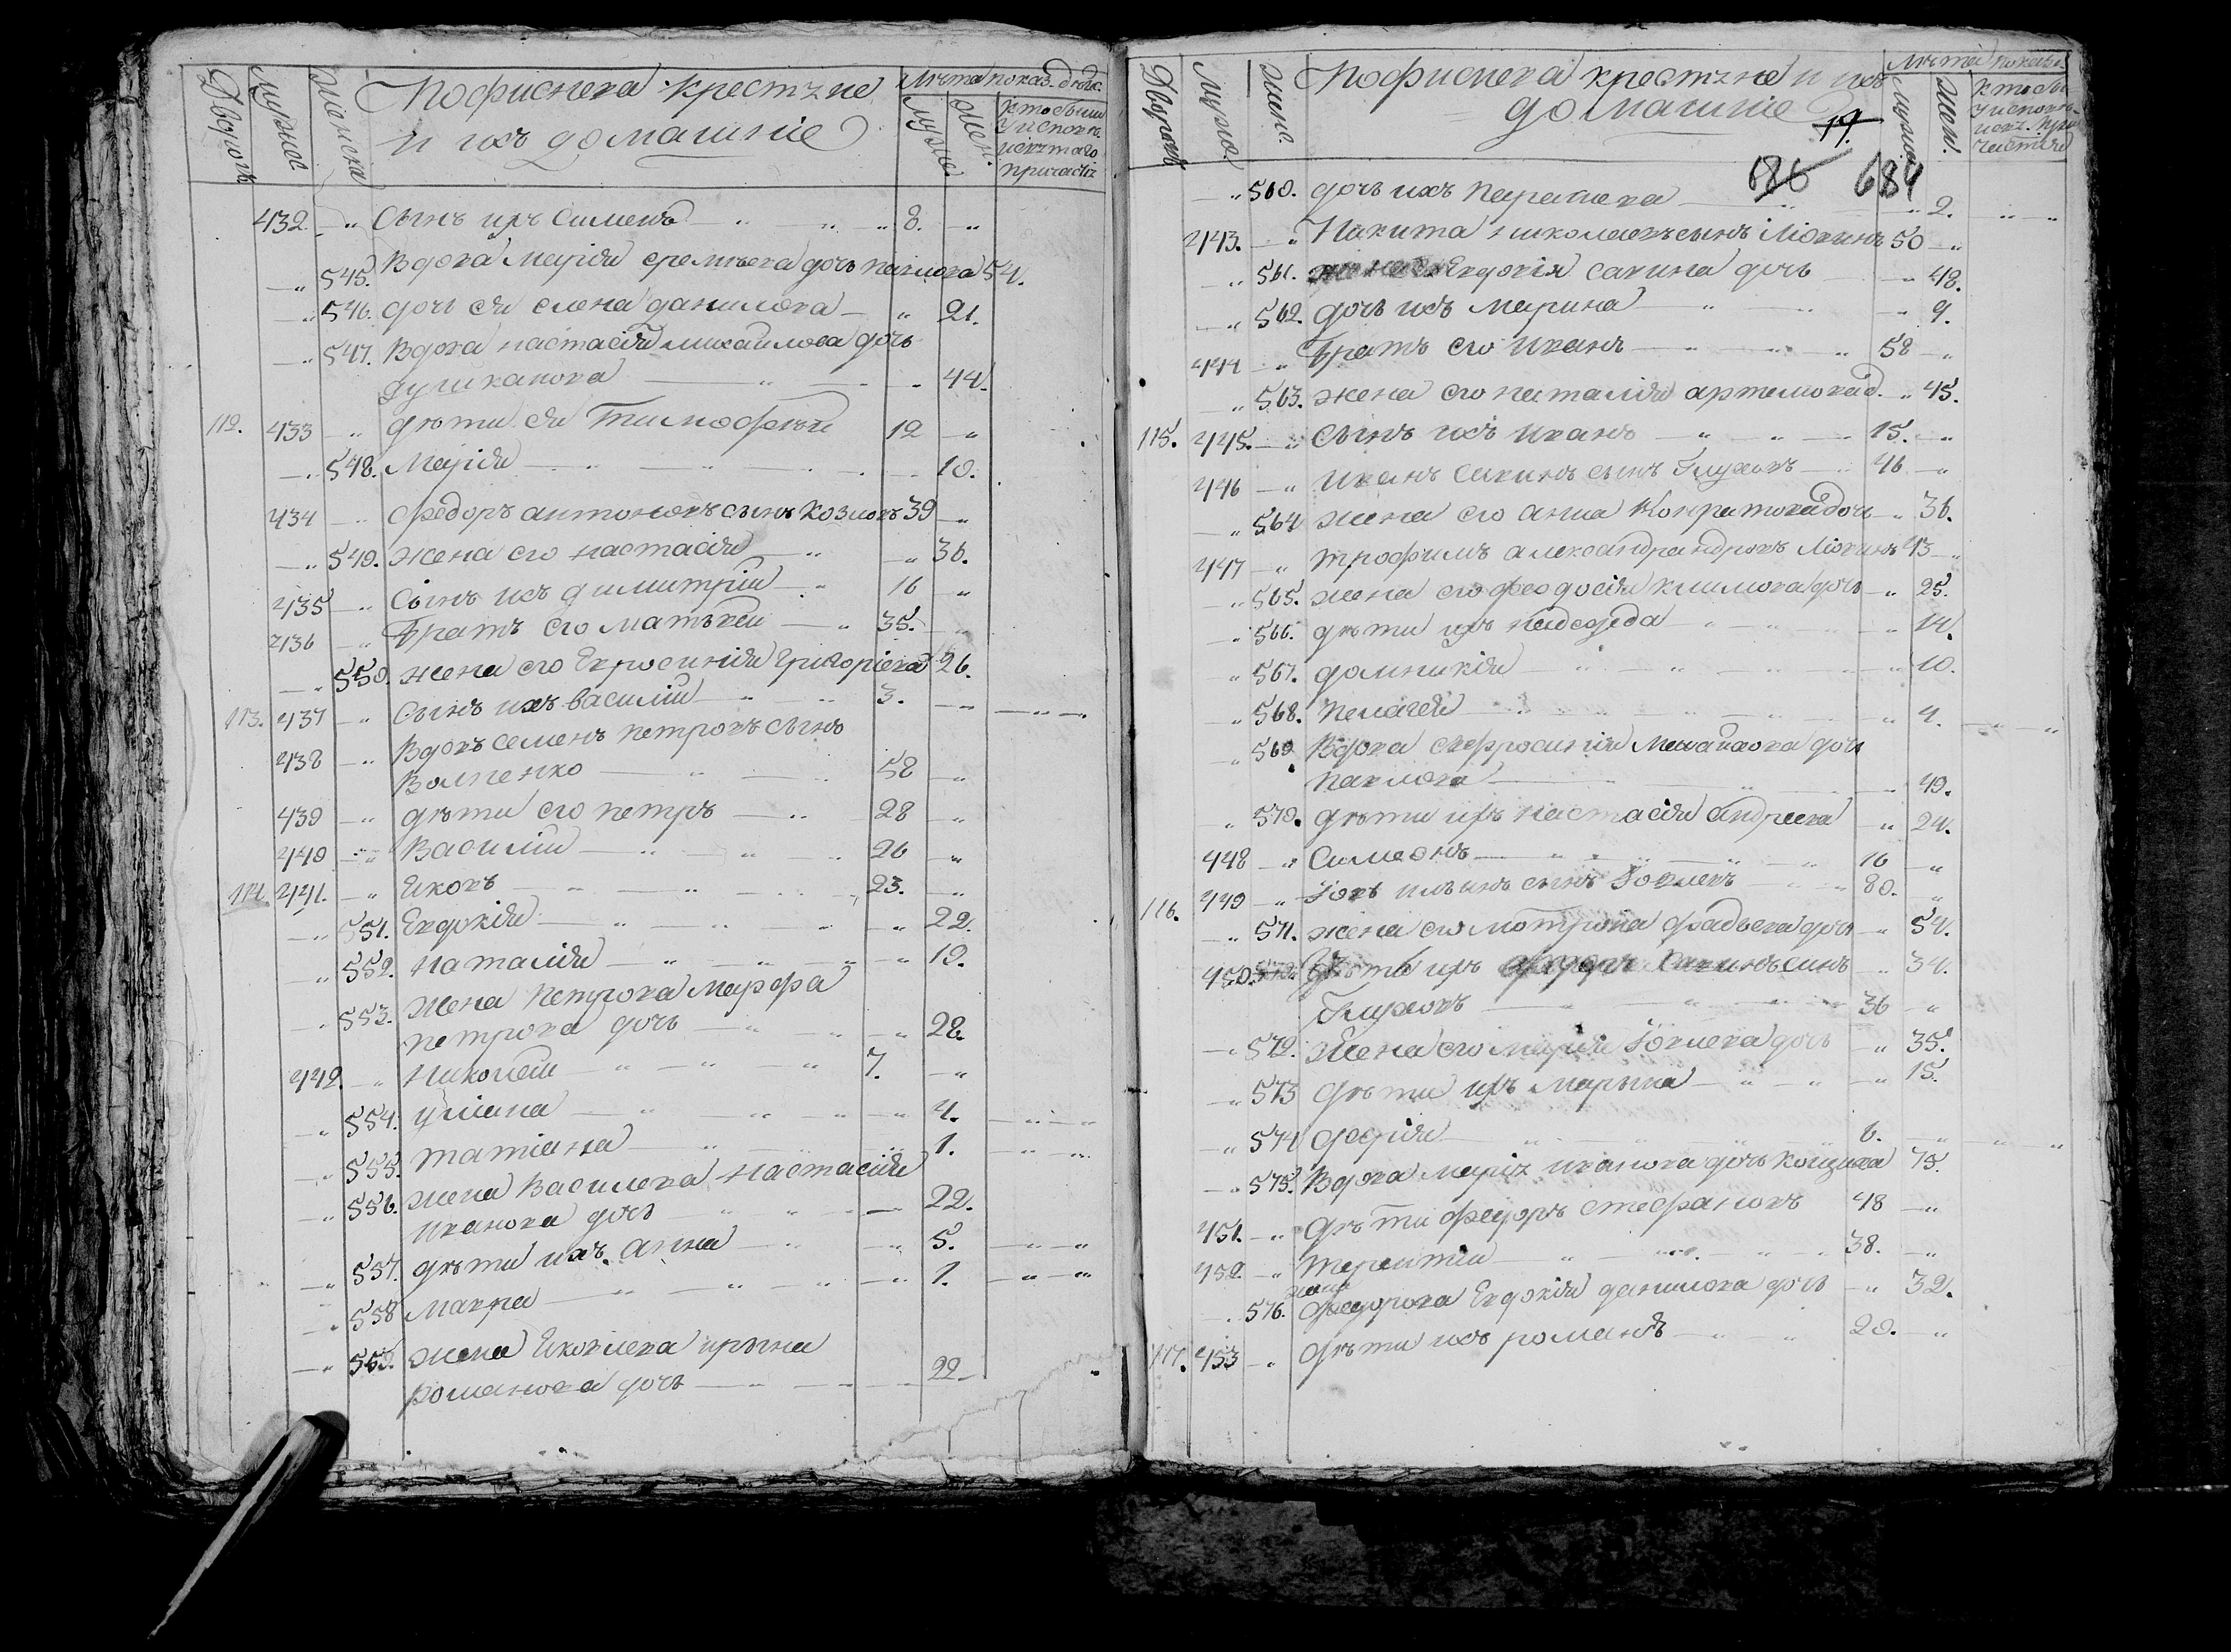 Дворовъ Мужес. Женска Пофиснева крестяне Лѣта показ. дѣйс.
и ихъ домашніе Муже. Жен. кто былъ у исповѣ. и св҃таго причастія
432. „ Сынъ ихъ Симеонъ „ „ „ 8. „
„ 545. Вдова Марія еремѣева дочь павлова 54.
„ 546. дочь ея елена данилова „ 21.
„ 547. Вдова настасія михаилова дочь
душканова „ „ 44.
112. 433 „ дѣти ея Тимофѣй 12 „
„ 548. Марія „ „ 10.
434 „ Федоръ антоновъ сынъ Козловъ 39 „
„ 549. жена его настасія „ „ 36.
435 „ Сынъ ихъ димитрій „ 16 „
436 „ Братъ его матвѣй „ 35. „
„ 550. жена его Ефросинія Григоріева 26.
113. 437 „ Сынъ ихъ василій „ „ 3. „ „ „
438 „ Вдовъ семенъ петровъ сынъ
Волненко „ „ 58 „
439 „ дѣти его петръ „ 28 „
440 „ Василій „ „ „ 26 „
114. 441. „ Яковъ „ „ „ 23. „
„ 551. Евдокія „ „ „ „ 22.
„ 552. Наталія „ „ „ „ 19.
„ 553. Жена Петрова Марфа
петрова дочь „ „ „ 28.
442. „ Николай „ „ „ 7. „
„ 554. уліана „ „ „ „ 4. „ „
„ 555. татіана „ „ „ 1. „ „
„ 556. жена Василева настасія
иванова дочь „ „ „ 22.
„ 557. дѣти ихъ анна „ „ 5. „ „
„ 558 Макра „ „ „ „ 1. „ „
„ 559. жена Яковлева ирина
романова дочь „ „ „ 22
Дворовъ Мужес. Женс. Пофиснева крестяне и ихъ Лѣта показ.
домашніе Мужес. Жен. кто былъ у исповѣ. и св. причастія
19.
686 684
„ 560. дочь ихъ параскева „ „ 2. „ „
443. „ Никита николаевъ сынъ Мокинъ 50 „
„ 561. жена его Евдокія савина дочь „ 48.
„ 562. дочь ихъ марина „ „ „ 9.
444 „ Братъ его иванъ „ „ „ 58 „
„ 563. жена его наталія артемова д. „ 45.
115. 445. „ Сынъ ихъ иванъ „ „ „ 15. „
446 „ иванъ савинъ сынъ Глуховъ „ 46 „
„ 564 жена его анна Кондратова дочь „ 36.
447 „ трофимъ александрандровъ Мокинъ 43 „
„ 565. жена его феодосія климова дочь „ 25.
„ 566. дѣти ихъ надежда „ „ „ „ 14.
„ 567. домникія „ „ „ „ 10.
„ 568. пелагея „ „ „ „ „ 4. „ „
„ 569 Вдова ефросинія Михаилова дочь
павлова „ „ „ 49.
„ 570. дѣти ихъ настасія андреева „ 24.
448 „ Симеонъ „ „ „ „ 16 „
116. 449 „ Іовъ ильинъ сынъ Іовлевъ „ „ 80. „
„ 571. жена его мотрона фадѣева дочь „ 54.
450. дѣти ихъ федоръ савинъ сынъ „ 34.
Глуховъ „ „ „ 36 „
„ 572. Жена его марія Іовлева дочь „ 35.
„ 573 дѣти ихъ марина „ „ „ 15.
„ 574 „ „ „ 6. „ „ „
„ 575. Вдова марія иванова дочь 75.
451. „ дѣти федоръ стефановъ 48 „
452 „ терентій „ „ „ 38. „
жена
„ 576. Федорова Евдокія данилова дочь „ 32.
117. 453 „ дѣти ихъ романъ „ „ 20. „